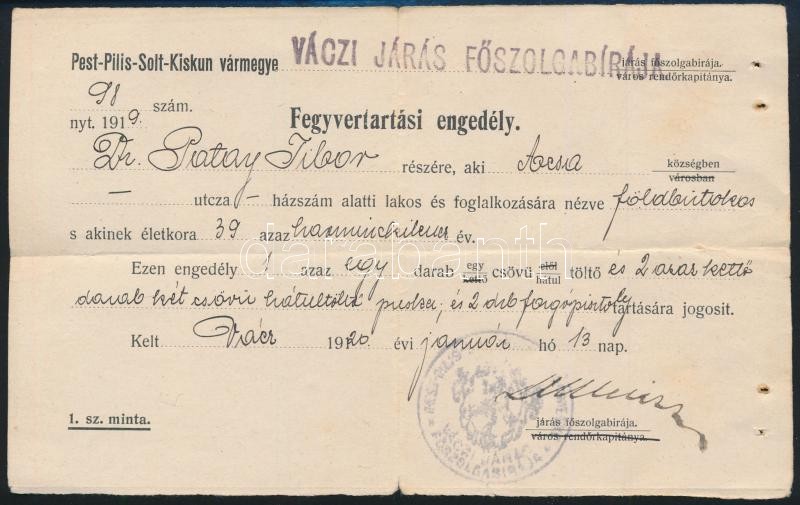 Pest-Pilis-Solt-Kiskun vármegye VÁCZI JÁRÁS FŐSZOLGABÍRÁJA járás főszolgabirája.
város rendőrkapitánya.
98 szám.
nyt. 1919.
Fegyvertartási engedély.
Dr. Patay Tibor részére, aki Acsa községben
városban
— utcza — házszám alatti lakos és foglalkozására nézve földbirtokos
s akinek életkora 39 azaz harminckilenc év.
Ezen engedély 1 azaz egy darab egy kettő csövü elől hátul töltő és 2 azaz kettő
darab két csövü hátultöltő puska, és 2 drb forgópisztoly tartására jogosit.
Kelt Vácz 1920 évi január hó 13 nap.
1. sz. minta.
járás főszolgabirája.
város rendőrkapitánya.
VÁCZI JÁRÁS
FŐSZOLGABIRÁJA
darabanth